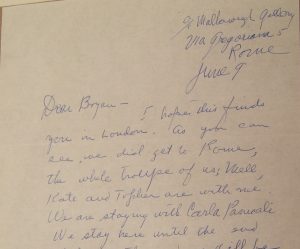 % Marlborough Gallery
Via Gregoriana 5
Rome
June 9
Dear Bryan –
I hope this finds
you in London. As you can
see, we did get to Rome,
the whole troupe of us; Mell,
Kate and Topher are with me.
We are staying with Carla Panicali
We stay here until the end